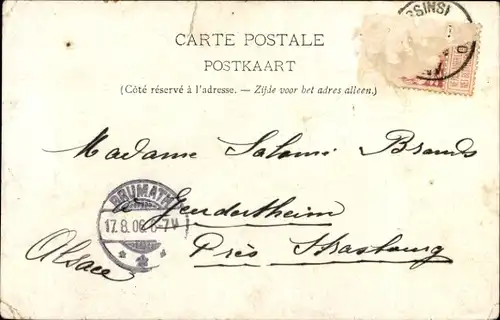 SSINSI
CARTE POSTALE
POSTKAART
(Côté réservé à l'adresse. — Zijde voor het adres alleen.)
Madame Salomé Brands
à Geudertheim
BRUMATH
17.8.06. 6-7V
Près Strasbourg
Alsace